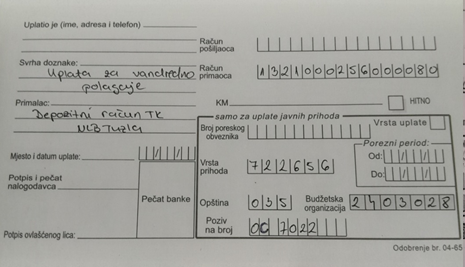 Uplatio je (ime, adresa i telefon)
Račun pošiljaoca
Svrha doznake:
Uplata za vanredno
polaganje
Račun primaoca 1321000256000080
Primalac:
Depozitni račun TK
NLB Tuzla
KM HITNO
samo za uplate javnih prihoda
Broj poreskog obveznika
Vrsta uplate
Mjesto i datum uplate:
Vrsta prihoda 722656
Porezni period:
Od:
Do:
Potpis i pečat nalogodavca
Pečat banke
Opština 035
Budžetska organizacija 2403028
Poziv na broj 7022
Potpis ovlašćenog lica:
Odobrenje br. 04-65